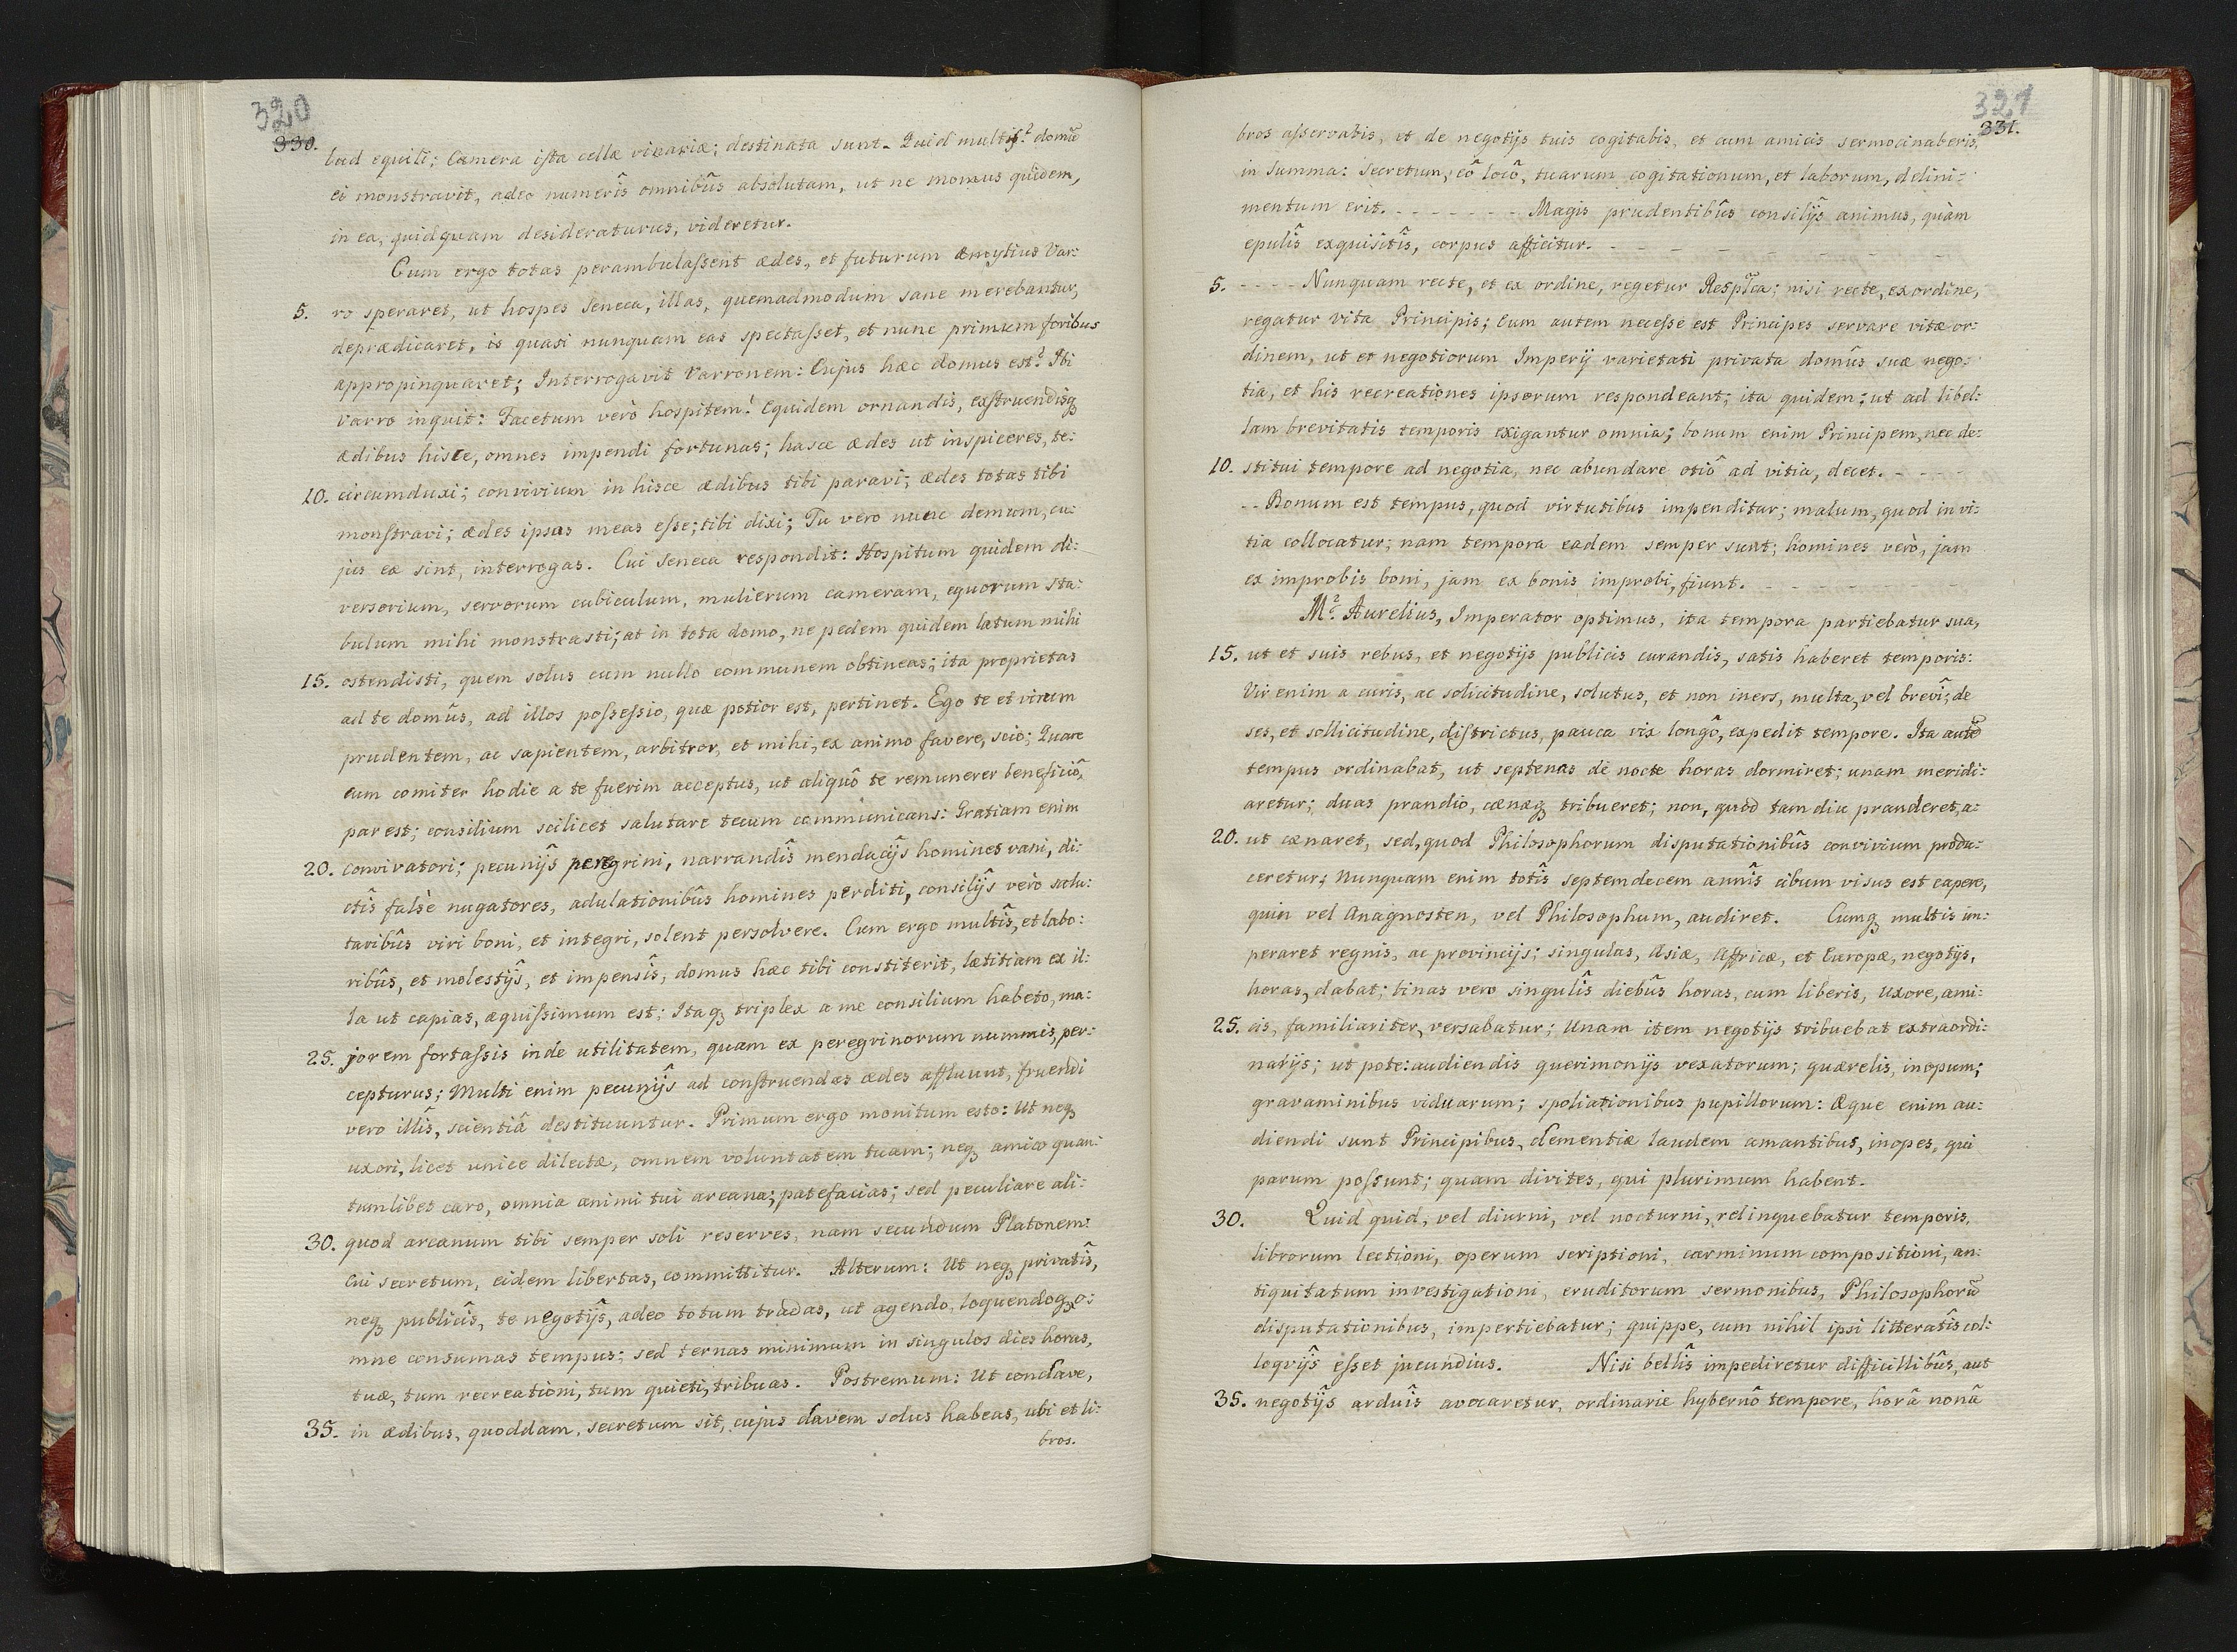 320
330.
lud equili; Camera ista cellæ vicariæ; destinata sunt. Quid multis? domũ
ei monstravit, adeo numerîs omnibûs absolutam, ut ne momus quidem,
in ea, quidquam desideraturus, videretur.
Cum ergo totas perambulassent ædes, et futurum Æmylius Var:
5. ro speraret, ut hospes Seneca, illas, quemadmodum sane merebantur,
deprædicaret, is quasi nunquam eas spectasset, et nunc primum foribus
appropinquaret; Interrogavit Varronem: Cujus hæc domus est? Ibi
Varro inquit: Facetum verò hospitem! Equidem ornandis, exstruendisq
ædibus hisce, omnes impendi fortunas; hasce ædes ut inspiceres, te:
10. circumduxi; convivium in hisce ædibus tibi paravi; ædes totas tibi
monstravi; ædes ipsas meas esse; tibi dixi; Tu vero nunc demum, cu:
jus eæ sint, interrogas. Cui Seneca respondit: Hospitum quidem di:
versorium, servorum cubiculum, mulierum cameram, equorum sta:
bulum mihi monstrasti; at in tota domo, ne pedem quidem latum mihi
15. ostendisti, quem solus cum nullo communem obtineas; ita proprietas
ad te domûs, ad illos possessio, quæ potior est, pertinet. Ego te et virum
prudentem, ac sapientem, arbitror, et mihi, ex animo favere, scio; Quare
cum comiter hodie a te fuerim acceptus, ut aliquô te remunerer beneficiô,
par est; consilium scilicet salutare tecum communicans: Gratiam enim
20. convivatori; pecunijs peregrini, narrandîs mendacijs homines vani, di:
ctîs falsè nugatores, adulationibûs homines perditi, consilijs verò salu:
taribûs viri boni, et integri, solent persolvere. Cum ergo multîs, et labo:
ribûs, et molestijs, et impensîs, domus hæc tibi constiterit, lætitiam ex il:
la ut capias, æquissimum est; Itaq triplex a me consilium habeto, ma:
25. jorem fortassis inde utilitatem, quam ex peregrinorum nummis, per:
cepturus; Multi enim pecunijs ad construendas ædes affluunt, fruendi
vero illîs, scientiâ destituuntur. Primum ergo monitum esto: Ut neq
uxori, licet unice dilectæ, omnem voluntatem tuam; neq amico quan:
tumlibet caro, omnia animi tui arcana; patefacias; sed peculiare ali:
30. quod arcanum tibi semper soli reserves, nam secundum Platonem:
Cui secretum, eidem libertas, committitur. Alterum: Ut neq privatîs,
neq publicîs, te negotijs, adeo totum tradas, ut agendo, loquendoq o:
mne consumas tempus; sed ternas minimum in singulos dies horas,
tuæ, tum recreationi, tum quieti, tribuas. Postremum: Ut conclave,
35. in ædibus, quoddam, secretum sit, cujus clavem solus habeas, ubi et li:
bros.
321
331.
bros asservabis, et de negotijs tuis cogitabis, et cum amicis sermocinaberis,
in Summa: Secretum, eô locô, tuarum cogitationum, et laborum, delini:
mentum erit. - - - - - - - Magis prudentibûs consilijs animus, quàm
epulîs exquisitîs, corpus afficitur. - - - - - - -
5. - - - - Nunquam recte, et ex ordine, regetur Respłca; nisi recte, ex ordine,
regatur vita Principis; Cum autem necesse est Principes servare vitæ or:
dinem, ut et negotiorum Imperij varietati privata domûs suæ nego:
tia, et his recreationes ipsorum respondeant; ita quidem; ut ad libel:
lam brevitatis temporis exigantur omnia; bonum enim Principem, nec de:
10. stitui tempore ad negotia, nec abundare otiô ad vitia, decet. - - - -
- - Bonum est tempus, quod virtutibus impenditur; malum, quod in vi:
tia collocatur; nam tempora eadem semper sunt; homines verò, jam
ex improbis boni, jam ex bonis improbi, fiunt. - - - - - - -
M. Aurelius, Imperator optimus, ita tempora partiebatur sua,
15. ut et suis rebus, et negotijs publicis curandis, satis haberet temporis:
Vir enim a curis, ac solicitudine, solutus, et non iners, multa, vel brevî; de
ses, et sollicitudine, districtus, pauca vix longô, expedit tempore. Ita autẽ
tempus ordinabat, ut septenas de nocte horas dormiret; unam meridi:
aretur; duas prandio, cænæq tribueret; non, quòd tam diu pranderet, a:
20. ut cænaret, sed, quod Philosophorum disputationibûs convivium produ:
ceretur; Nunquam enim totîs septemdecem annîs cibum visus est capere,
quin vel Anagnosten, vel Philosophum, audiret. Cumq multis im:
peraret regnis, ac provincijs; singulas, Asiæ, Affricæ, et Europæ, negotijs,
horas, dabat; binas vero singulîs diebûs horas, cum liberis, Uxore, ami:
25. cis, familiariter, versabatur; Unam item negotijs tribuebat extraordi:
narijs; ut pote: audiendis querimonijs vexatorum; quærelis, inopum;
gravaminibus viduarum; spoliationibus pupillorum: Æque enim au:
diendi sunt Principibus, clementiæ laudem amantibus, inopes, qui
parum possunt; quam divites, qui plurimum habent.
30. Quid quid, vel diurni, vel nocturni, relinquebatur temporis,
librorum lectioni, operum scriptioni, carminum compositioni, an:
tiquitatum investigationi, eruditorum sermonibus, Philosophorũ
disputationibus, impertiebatur; quippe, cum nihil ipsi litteratîs col:
loqvijs esset jucundius. Nisi bellîs impediretur difficillibûs, aut
35. negotijs arduîs avocaretur, ordinarie hybernô tempore, horâ nonâ